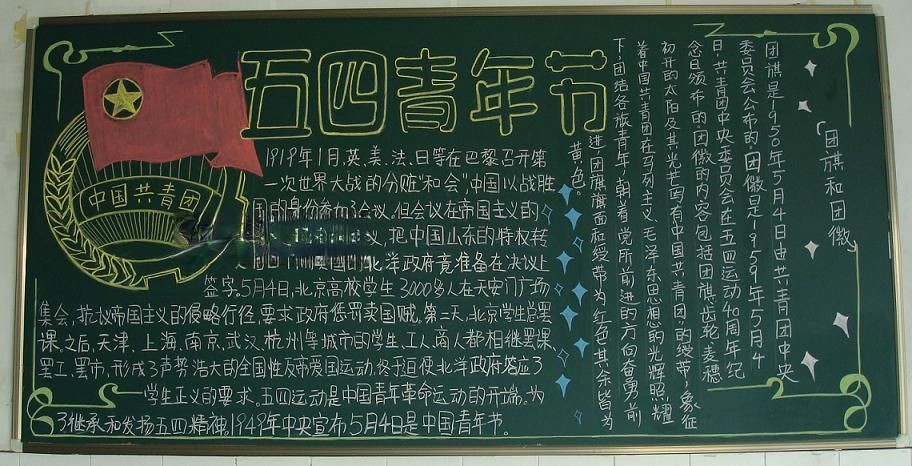 五四青年节
中国共青团
1919年1月,英、美、法、日等在巴黎召开第
一次世界大战的分赃“和会”,中国以战胜
国的身份参加了会议,但会议在帝国主义的
议,把中国山东的特权转
北洋政府竟准备在决议上
签字。5月4日,北京高校学生3000多人在天安门广场
集会,抗议帝国主义的侵略行径,要求政府惩罚卖国贼。第二天,北京学生总罢
课。之后,天津、上海、南京、武汉、杭州等城市的学生、工人、商人都相继罢课、
罢工、罢市,形成了声势浩大的全国性反帝爱国运动,终于迫使北洋政府答应了
学生正义的要求,五四运动是中国青年革命运动的开端。为
了继承和发扬五四精神,1949年中央宣布5月4日是中国青年节。
「团旗和团徽」
团旗是1950年5月4日由共青团中央
委员会公布的,团徽是1959年5月4
日,共青团中央委员会在五四运动40周年纪
念日颁布的,团徽的内容包括团旗、齿轮、麦穗、
初开的太阳及其光芒,团有中国共青团,的绶带,象征
着中国共青团在马列主义、毛泽东思想的光辉照耀
下,团结各族青年,朝着党所前进的方向奋勇前
进,团旗旗面和绶带为红色,其余皆为
黄色。